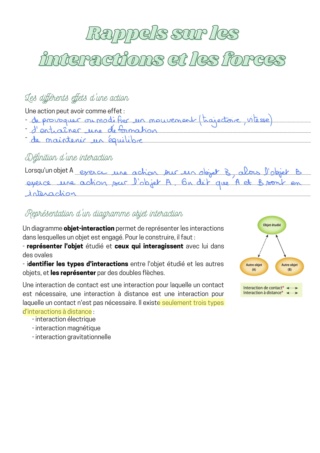 Rappels sur les
interactions et les forces
Les différents effets d'une action
Une action peut avoir comme effet :
- de provoquer ou modifier un mouvement (trajectoire, vitesse)
- d'entraîner une déformation
- de maintenir un équilibre
Définition d'une interaction
Lorsqu'un objet A exerce une action sur un objet B, alors l'objet B
exerce une action sur l'objet A. On dit que A et B sont en
interaction
Représentation d'un diagramme objet interaction
Un diagramme objet-interaction permet de représenter les interactions
dans lesquelles un objet est engagé. Pour le construire, il faut :
- représenter l'objet étudié et ceux qui interagissent avec lui dans
des ovales
- identifier les types d'interactions entre l'objet étudié et les autres
objets, et les représenter par des doubles flèches.
Objet étudié
Autre objet
(A)
Autre objet
(B)
Interaction de contact*
Interaction à distance*
Une interaction de contact est une interaction pour laquelle un contact
est nécessaire, une interaction à distance est une interaction pour
laquelle un contact n'est pas nécessaire. Il existe seulement trois types
d'interactions à distance :
- interaction électrique
- interaction magnétique
- interaction gravitationnelle